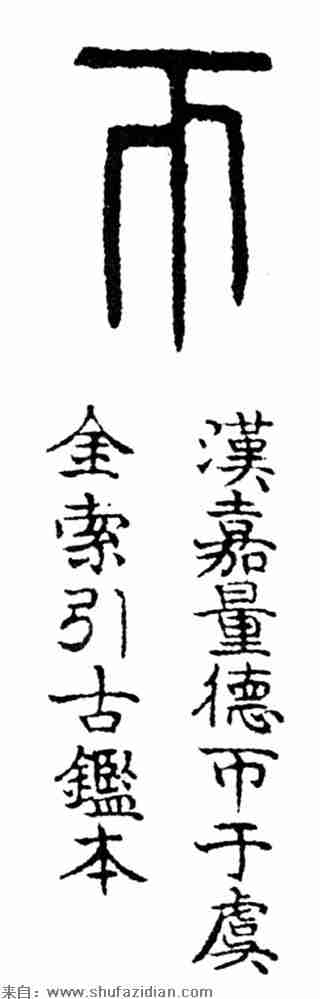 帀
漢嘉量德帀于虞
金索引古鑑本
来自：www.shufazidian.com